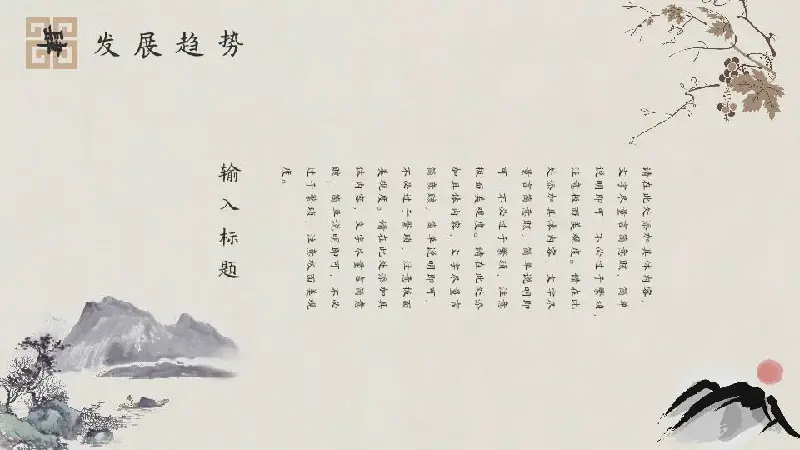 肆
发展趋势
请在此处添加具体内容，
文字尽量言简意赅，简单
说明即可，不必过于繁琐，
注意板面美观度。请在此
处添加具体内容，文字尽
量言简意赅，简单说明即
可，不必过于繁琐，注意
板面美观度。请在此处添
加具体内容，文字尽量言
简意赅，简单说明即可，
不必过于繁琐，注意板面
美观度。请在此处添加具
体内容，文字尽量言简意
赅，简单说明即可，不必
过于繁琐，注意板面美观
度。
输入标题